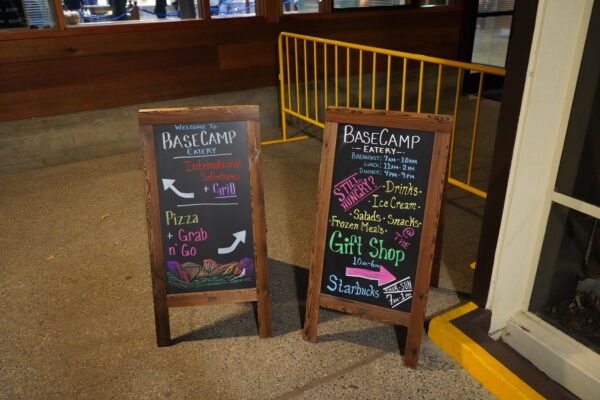 Welcome To
BASECAMP
EATERY
International
Selections
+ Grill
Pizza
+ Grab
n' Go
BASECAMP
-EATERY-
BREAKFAST: 7AM-10AM
LUNCH: 11AM-2PM
DINNER: 4PM-9PM
STILL
HUNGRY?
Drinks
Ice Cream
Salads Snacks
Frozen Meals
@
THE
Gift Shop
10AM-6PM
Starbucks
7AM-2PM